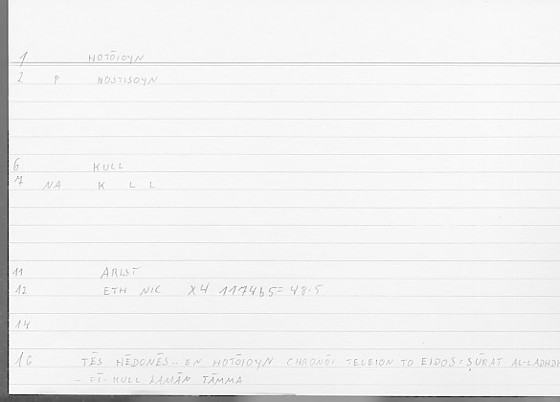 1 HOTŌIOYN
2 P HOSTISOYN
6 KULL
7 NA K L L
11 ARIST
12 ETH NIC X4 1174b5=48.5
14
16 TĒS HĒDONĒS.. EN HOTŌIOYN CHRONŌI TELEION TO EIDOS = ṢŪRAT AL-LADHDH
- FĪ-KULL ZAMĀN TĀMMA